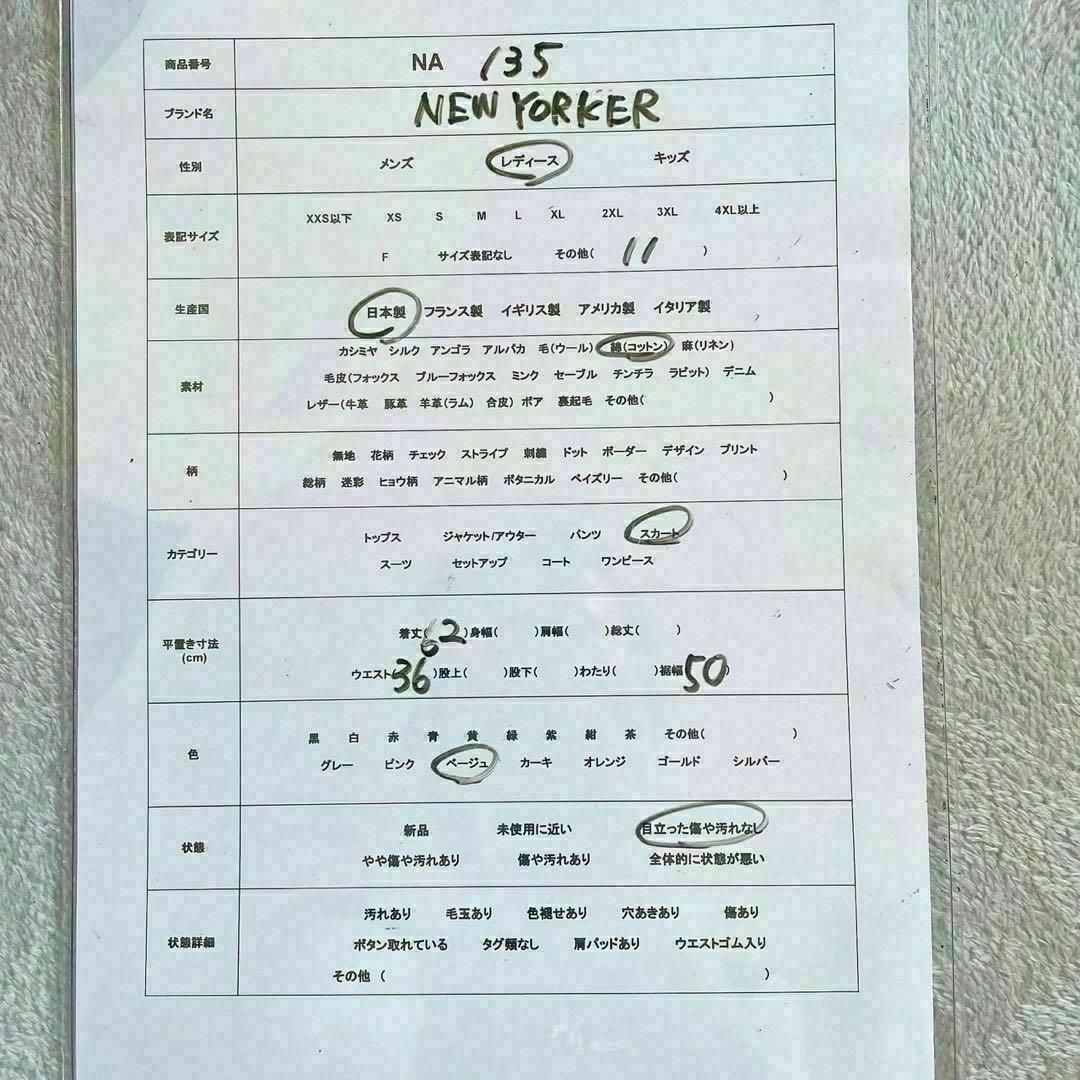 商品番号 NA 135
ブランド名 NEW YORKER
性別 メンズ レディース キッズ
表記サイズ
XXS以下 XS S M L XL 2XL 3XL 4XL以上
F サイズ表記なし その他( 11 )
生産国 日本製 フランス製 イギリス製 アメリカ製 イタリア製
素材
カシミヤ シルク アンゴラ アルパカ 毛(ウール) 綿(コットン) 麻(リネン)
毛皮(フォックス ブルーフォックス ミンク セーブル チンチラ ラビット) デニム
レザー(牛革 豚革 羊革(ラム) 合皮) ボア 裏起毛 その他( )
柄
無地 花柄 チェック ストライプ 刺繍 ドット ボーダー デザイン プリント
総柄 迷彩 ヒョウ柄 アニマル柄 ボタニカル ペイズリー その他( )
カテゴリー
トップス ジャケット/アウター パンツ スカート
スーツ セットアップ コート ワンピース
平置き寸法
(cm)
着丈( 62 )身幅( )肩幅( )総丈( )
ウエスト( 36 )股上( )股下( )わたり( )裾幅( 50 )
色
黒 白 赤 青 黄 緑 紫 紺 茶 その他( )
グレー ピンク ベージュ カーキ オレンジ ゴールド シルバー
状態
新品 未使用に近い 目立った傷や汚れなし
やや傷や汚れあり 傷や汚れあり 全体的に状態が悪い
状態詳細
汚れあり 毛玉あり 色褪せあり 穴あきあり 傷あり
ボタン取れている タグ類なし 肩パッドあり ウエストゴム入り
その他 ( )